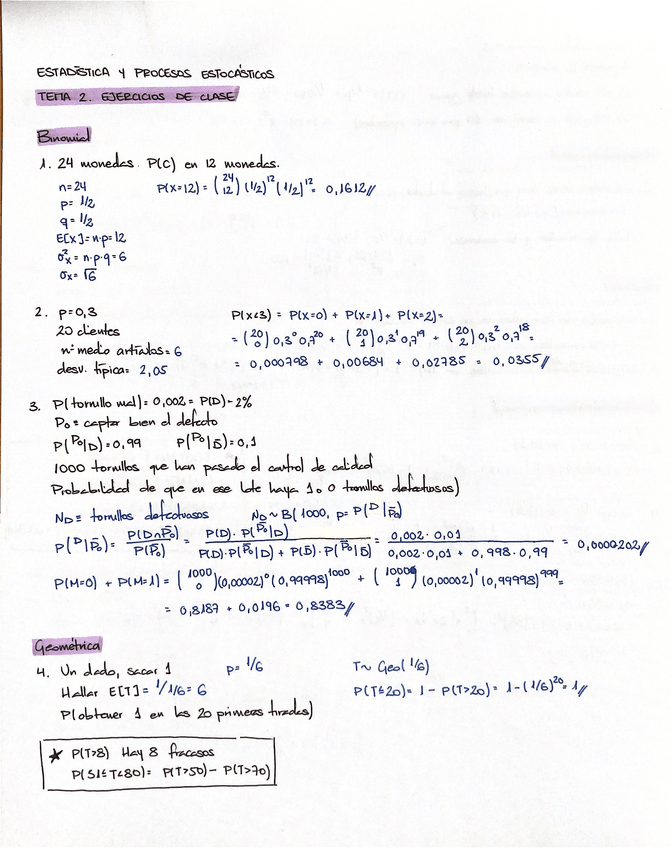 ESTADÍSTICA Y PROCESOS ESTOCÁSTICOS
TEMA 2. EJERCICIOS DE CLASE
Binomial
1. 24 monedas. P(C) en 12 monedas.
n=24 P(X=12) = (24 12) (1/2)^12 (1/2)^12 = 0,1612//
p= 1/2
q= 1/2
E[X]=n·p=12
σ²x = n·p·q=6
σx= √6
2. p=0,3 P(X<3) = P(X=0) + P(X=1) + P(X=2)=
20 clientes = (20 0) 0,3^0 0,7^20 + (20 1) 0,3^1 0,7^19 + (20 2) 0,3^2 0,7^18 =
nº medio artículos= 6 = 0,000798 + 0,00684 + 0,02785 = 0,0355//
desv. típica= 2,05
3. P(tornillo mal)= 0,002 = P(D) - 2%
Po = captar bien el defecto
P(Po|D)=0,99 P(Po|D̄)=0,1
1000 tornillos que han pasado el control de calidad
Probabilidad de que en ese lote haya 1 o 0 tornillos defectuosos)
ND = tornillos defectuosos ND ~ B(1000, p= P(D|P̄o)
P(D|P̄o) = P(D∩P̄o)/P(P̄o) = P(D)·P(P̄o|D) / P(D)·P(P̄o|D) + P(D̄)·P(P̄o|D̄) = 0,002·0,01 / 0,002·0,01 + 0,998·0,99 = 0,0000202//
P(M=0) + P(M=1) = (1000 0)(0,00002)^0 (0,99998)^1000 + (1000 1)(0,00002)^1 (0,99998)^999 =
= 0,8187 + 0,0196 = 0,8383//
Geométrica
4. Un dado, sacar 1 p= 1/6 T~ Geo(1/6)
Hallar E[T] = 1/1/6 = 6 P(T≤20)= 1 - P(T>20) = 1-(1/6)^20 = 1//
P(obtener 1 en las 20 primeras tiradas)
* P(T>8) Hay 8 fracasos
P(51≤T<80)= P(T>50) - P(T>70)